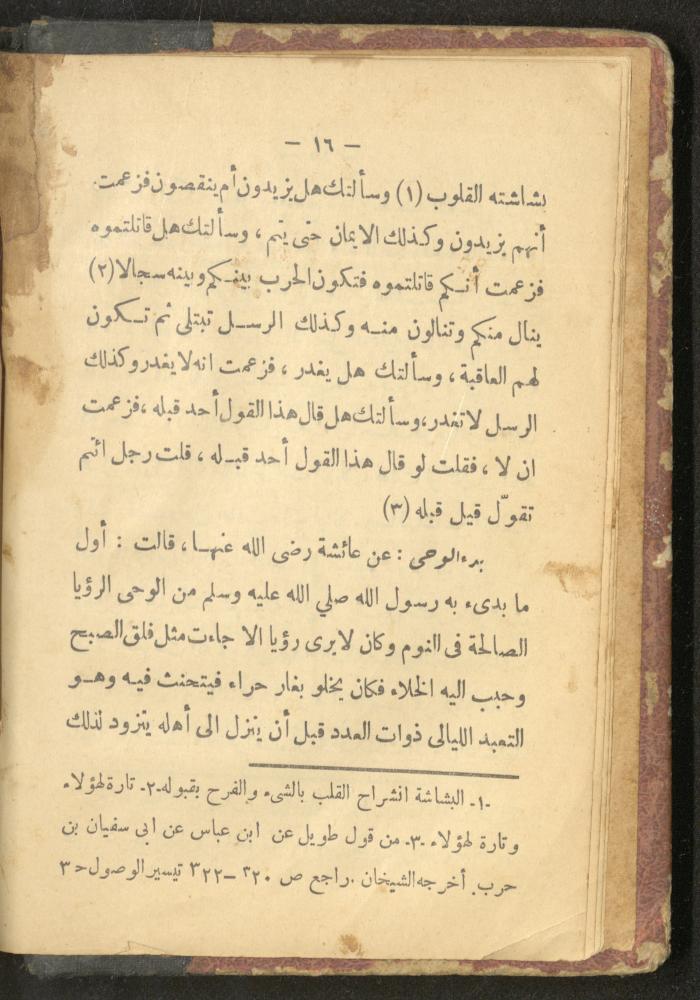 — ١٦ —
بشاشته القلوب (١) وسألتك هل يزيدون أم ينقصون فزعمت
أنهم يزيدون وكذلك الايمان حتى يتم ، وسألتك هل قاتلتموه
فزعمت أنكم قاتلتموه فتكون الحرب بينكم وبينه سجالا (٢)
ينال منكم وتنالون منه وكذلك الرسل تبتلى ثم تكون
لهم العاقبة ، وسألتك هل يغدر ، فزعمت انه لا يغدر وكذلك
الرسل لا تغدر ، وسألتك هل قال هذا القول أحد قبله ، فزعمت
ان لا ، فقلت لو قال هذا القول أحد قبله ، قلت رجل ائتم
تقوّل قيل قبله (٣)
بدء الوحى : عن عائشة رضى الله عنها ، قالت : أول
ما بدىء به رسول الله صلي الله عليه وسلم من الوحى الرؤيا
الصالحة فى النوم وكان لا يرى رؤيا الا جاءت مثل فلق الصبح
وحبب اليه الخلاء فكان يخلو بغار حراء فيتحنث فيه وهو
التعبد الليالى ذوات العدد قبل أن ينزل الى أهله يتزود لذلك
-١- البشاشة انشراح القلب بالشىء والفرح بقبوله -٢- تارة لهؤلاء
وتارة لهؤلاء -٣- من قول طويل عن ابن عباس عن ابى سفيان بن
حرب. أخرجه الشيخان . راجع ص ٣٢٠ — ٣٢٢ تيسير الوصول ح ٣